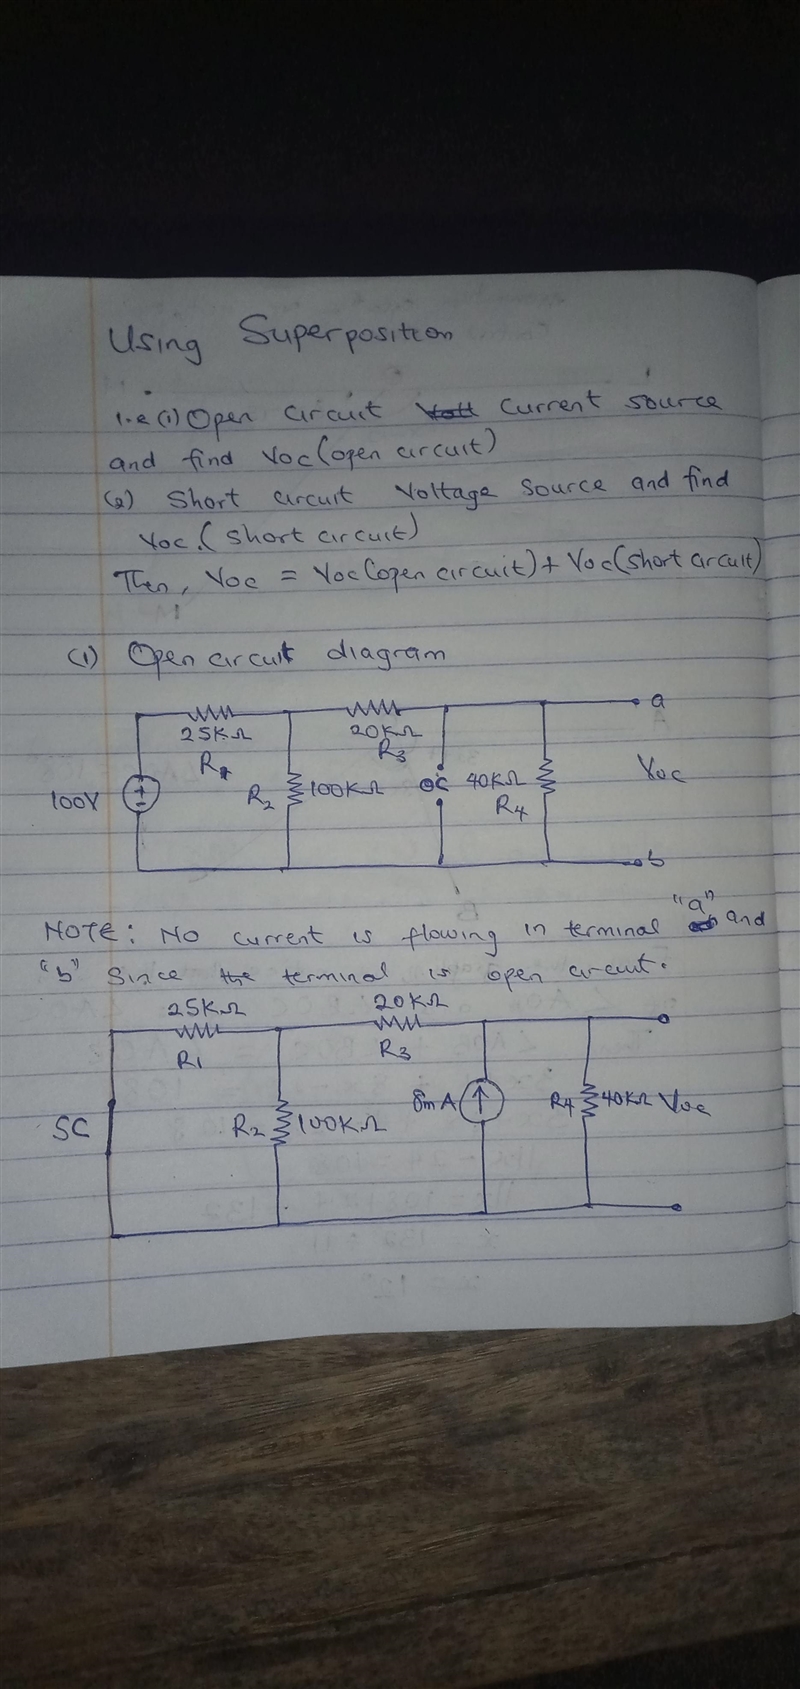 Using Superposition
i.e (1) Open circuit current source
and find Voc (open circuit)
(2) Short circuit Voltage source and find
Voc. (short circuit)
Then, Voc = Voc(open circuit) + Voc(short circuit)
(1) Open circuit diagram
25KΩ 20KΩ a
R1 R3
100V R2 100KΩ OC 40KΩ R4 Voc
b
NOTE: No current is flowing in terminal "a" and
"b" Since the terminal is open circuit.
25KΩ 20KΩ
R1 R3
SC R2 100KΩ 8mA R4 40KΩ Voc